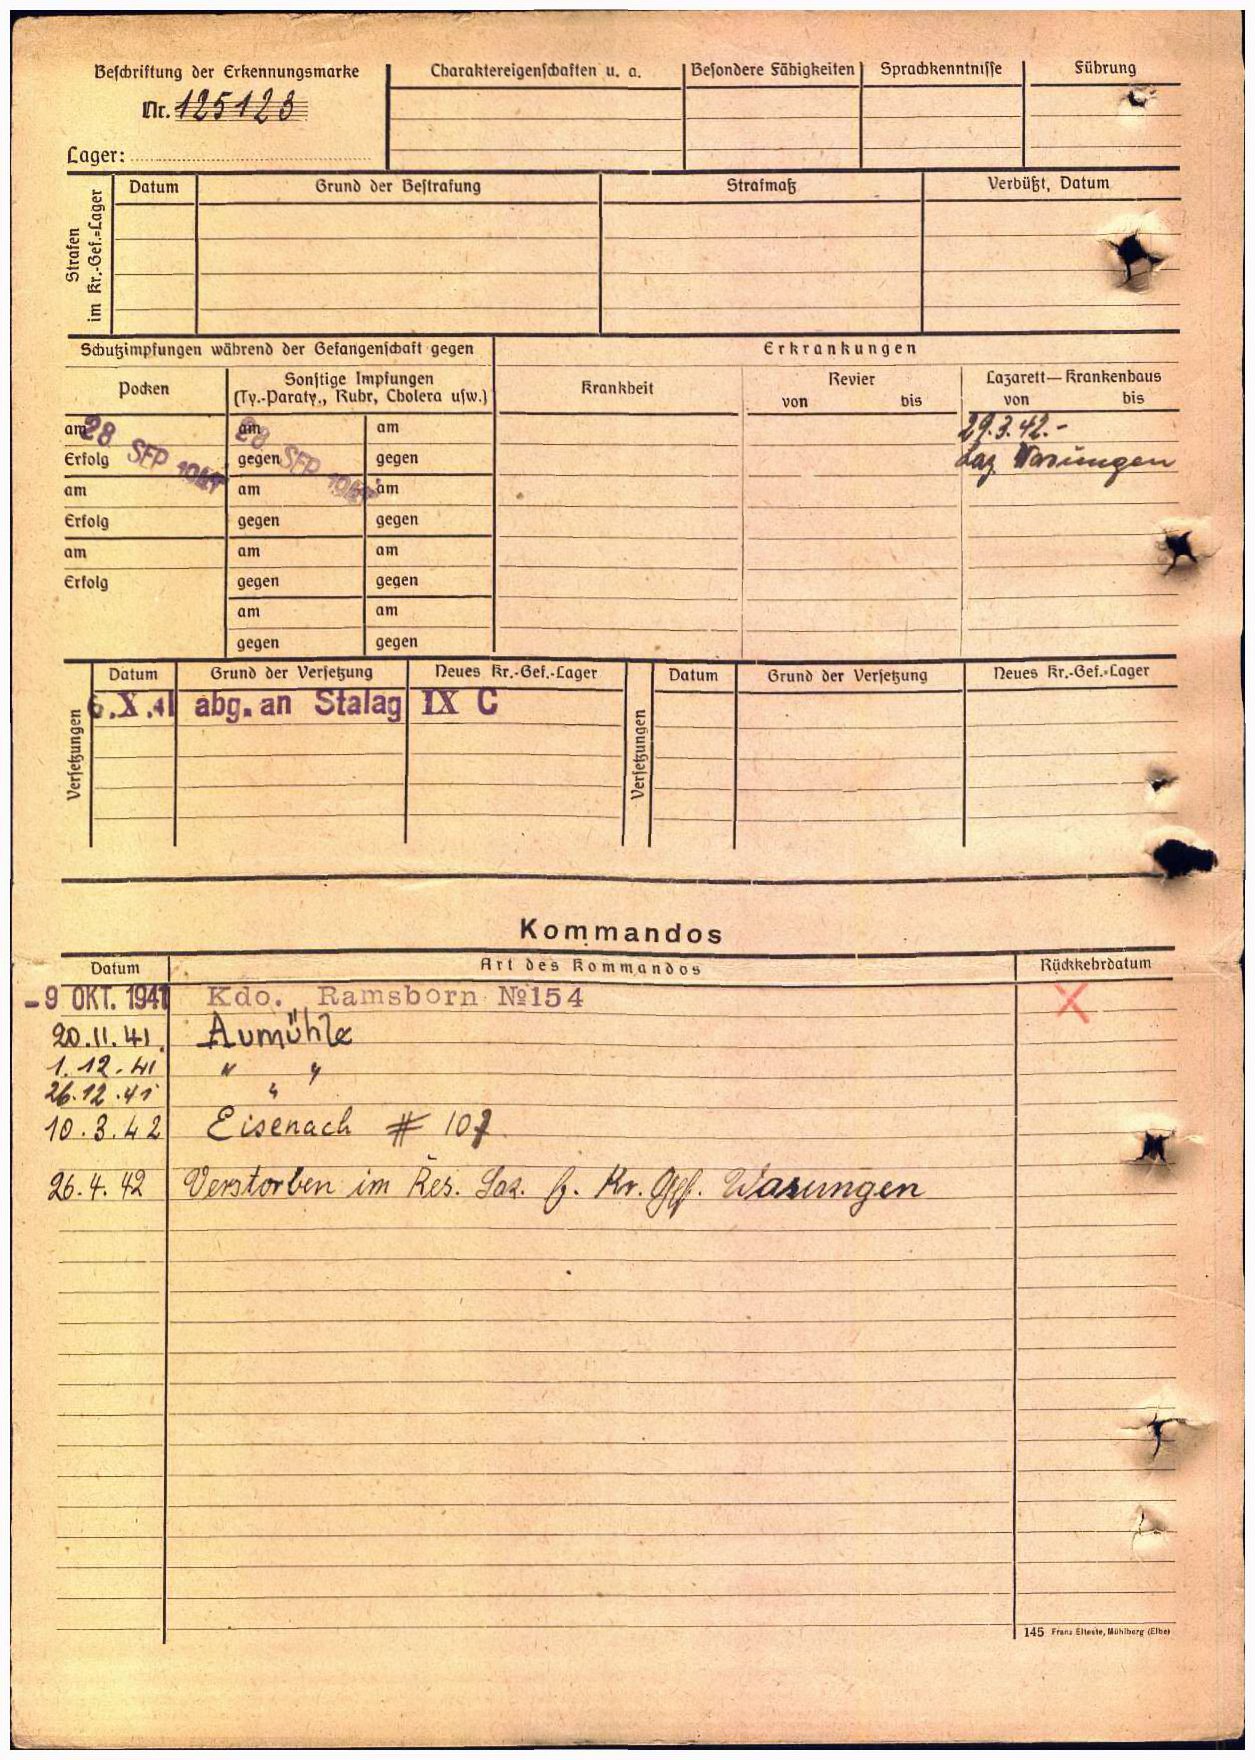 Beschriftung der Erkennungsmarke
Nr. 125123
Lager:
Charaktereigenschaften u. a.
Besondere Fähigkeiten
Sprachkenntnisse
Führung
Strafen im Kr.-Gef.=Lager
Datum
Grund der Bestrafung
Strafmaß
Verbüßt, Datum
Schutzimpfungen während der Gefangenschaft gegen
Erkrankungen
Pocken
Sonstige Impfungen
(Ty.-Paraty., Ruhr, Cholera usw.)
Krankheit
Revier
von bis
Lazarett—Krankenhaus
von bis
am 28 SEP 1941 am 28 SEP 1941 am
29.3.42.-
Erfolg gegen gegen
Laz Wasungen
am am am
Erfolg gegen gegen
am am am
Erfolg gegen gegen
am am
gegen gegen
Versetzungen
Datum Grund der Versetzung Neues Kr.-Gef.-Lager
6.X.41 abg. an Stalag IX C
Versetzungen
Datum Grund der Versetzung Neues Kr.-Gef.-Lager
Kommandos
Datum Art des Kommandos Rückkehrdatum
-9 OKT. 1941 Kdo. Ramsborn №154
20.11.41. Aumühle
1.12.41 " "
26.12.41 "
10.3.42 Eisenach # 107
26.4.42 Verstorben im Res. Laz. f. Kr. Gef. Wasungen
145 Franz Elteste, Mühlberg (Elbe)